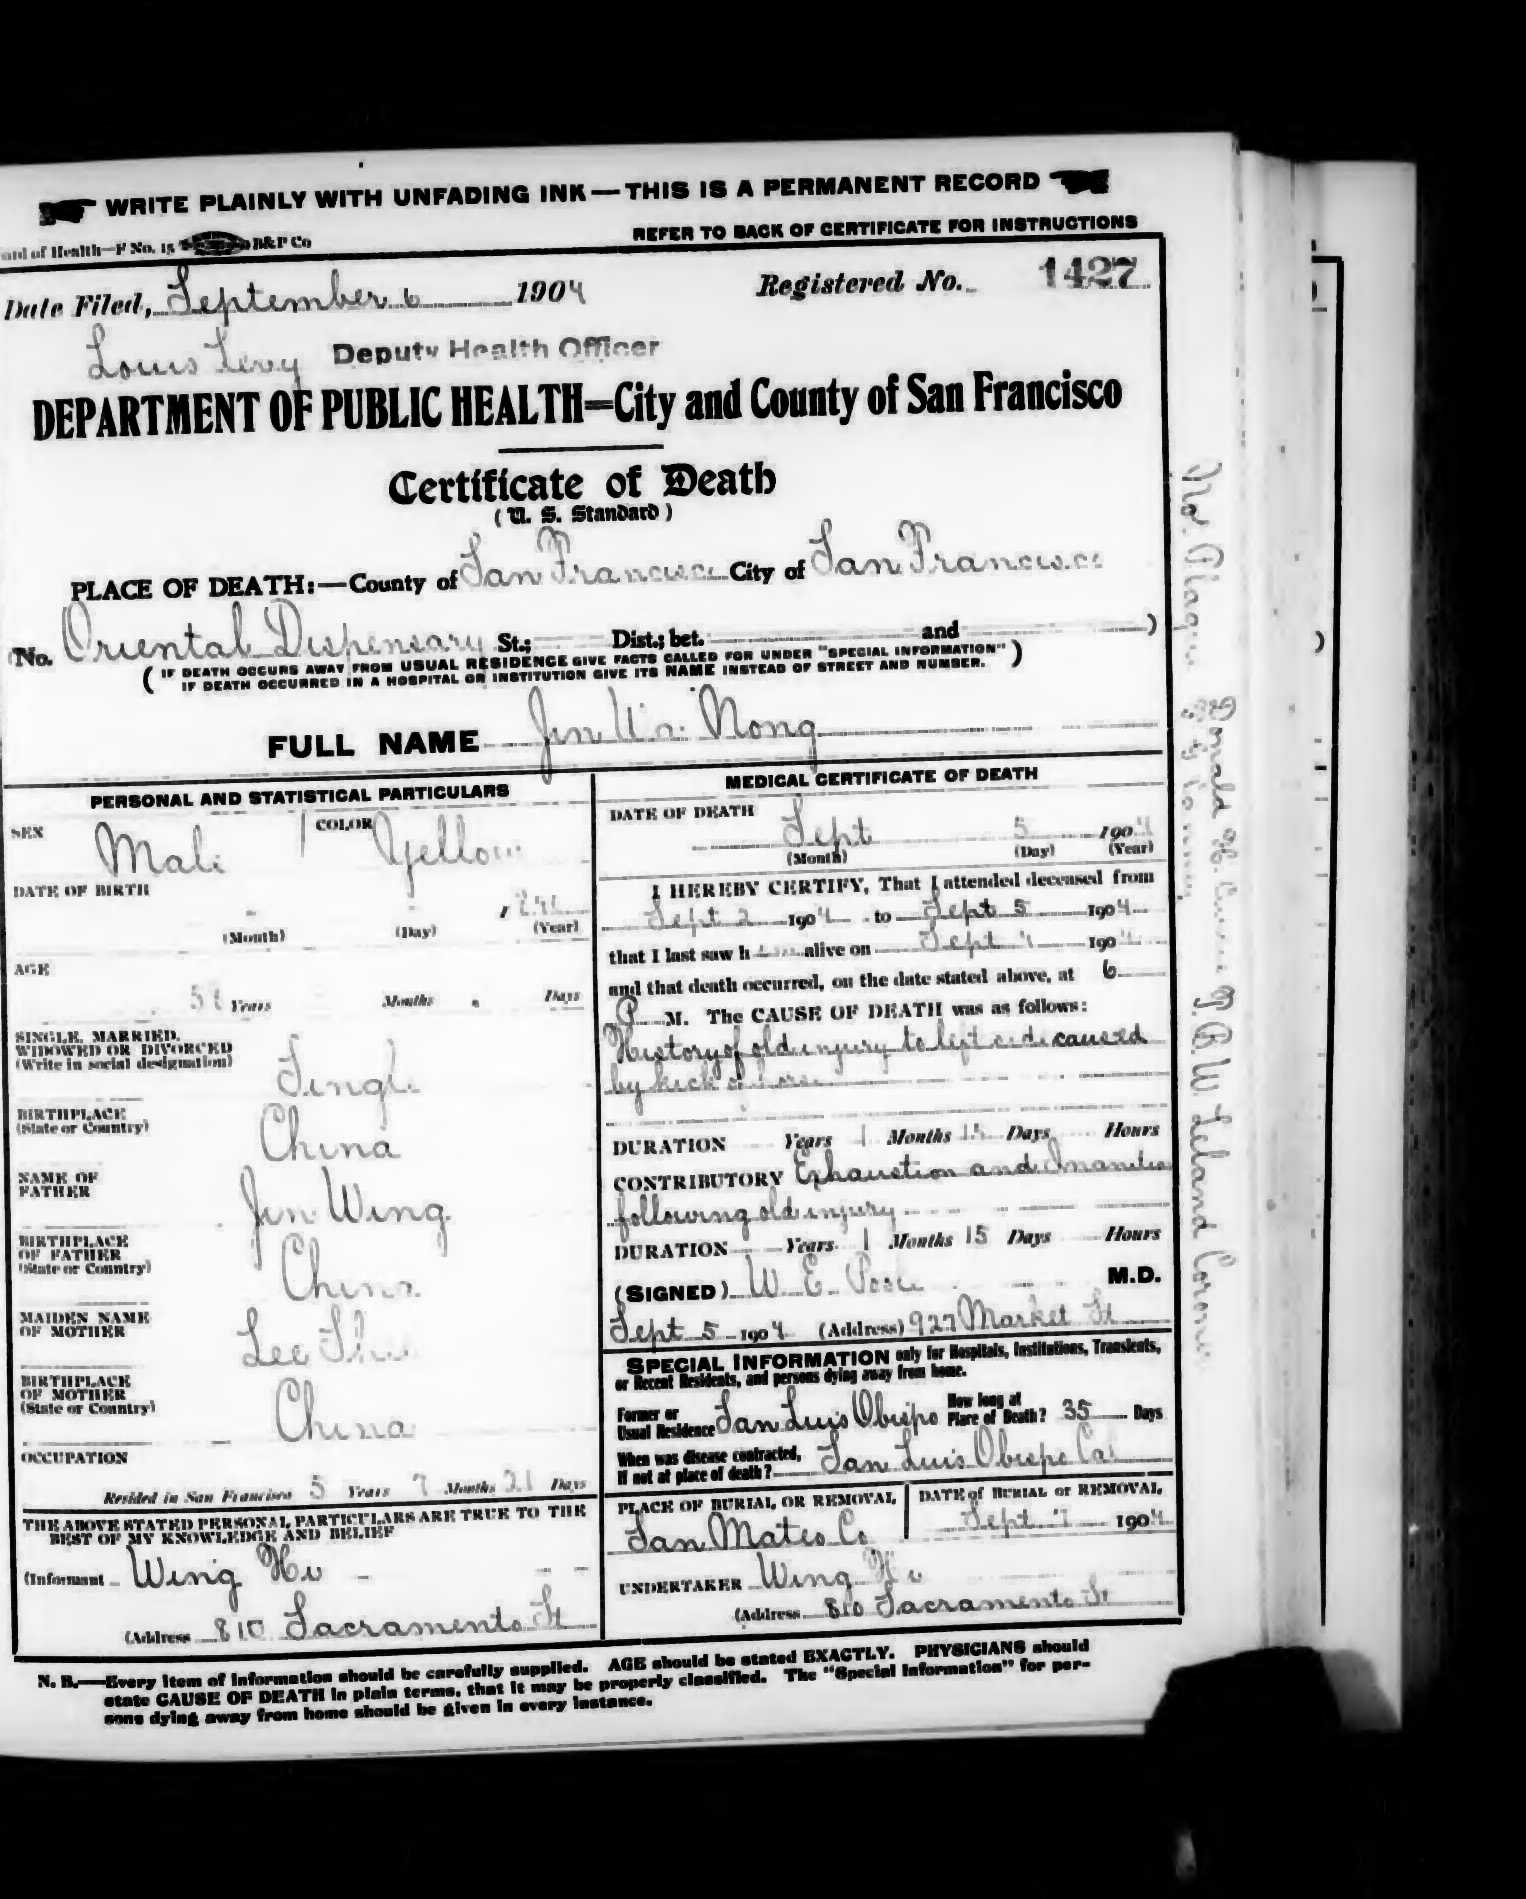 WRITE PLAINLY WITH UNFADING INK — THIS IS A PERMANENT RECORD
of Health—F No. 15 B&P Co
REFER TO BACK OF CERTIFICATE FOR INSTRUCTIONS
Date Filed, September 6 1904 Registered No. 1427
Louis Levy Deputy Health Officer
DEPARTMENT OF PUBLIC HEALTH=City and County of San Francisco
Certificate of Death
(U. S. Standard)
PLACE OF DEATH:—County of San Francisco City of San Francisco
(No. Oriental Dispensary St.; Dist.; bet. and )
( IF DEATH OCCURS AWAY FROM USUAL RESIDENCE GIVE FACTS CALLED FOR UNDER "SPECIAL INFORMATION" )
IF DEATH OCCURRED IN A HOSPITAL OR INSTITUTION GIVE ITS NAME INSTEAD OF STREET AND NUMBER.
FULL NAME Jin Nong
PERSONAL AND STATISTICAL PARTICULARS
SEX Male COLOR Yellow
DATE OF BIRTH
1
(Month) (Day) (Year)
AGE
Years Months Days
SINGLE, MARRIED,
WIDOWED OR DIVORCED
(Write in social designation) Single
BIRTHPLACE
(State or Country) China
NAME OF
FATHER Jin Wing
BIRTHPLACE
OF FATHER
(State or Country) China
MAIDEN NAME
OF MOTHER Lee
BIRTHPLACE
OF MOTHER
(State or Country) China
OCCUPATION
Resided in San Francisco 5 Years 7 Months 21 Days
THE ABOVE STATED PERSONAL PARTICULARS ARE TRUE TO THE
BEST OF MY KNOWLEDGE AND BELIEF
(Informant Wing
(Address 810 Sacramento St
MEDICAL CERTIFICATE OF DEATH
DATE OF DEATH
Sept 5 1904
(Month) (Day) (Year)
I HEREBY CERTIFY, That I attended deceased from
Sept 2 1904 to Sept 5 1904
that I last saw h alive on Sept 190
and that death occurred, on the date stated above, at 6
P M. The CAUSE OF DEATH was as follows:
History of old injury to left side caused
by kick of horse
DURATION Years 1 Months 15 Days Hours
CONTRIBUTORY Exhaustion and Inanition
following old injury
DURATION Years 1 Months 15 Days Hours
(SIGNED) W E M.D.
Sept 5 1904 (Address) 927 Market St
SPECIAL INFORMATION only for Hospitals, Institutions, Transients,
or Recent Residents, and persons dying away from home.
Former or
Usual Residence San Luis Obispo How long at
Place of Death? 35 Days
When was disease contracted,
If not at place of death? San Luis Obispo Cal
PLACE OF BURIAL OR REMOVAL DATE of BURIAL or REMOVAL
San Mateo Co Sept 1904
UNDERTAKER Wing
(Address 810 Sacramento St
N. B.—Every item of information should be carefully supplied. AGE should be stated EXACTLY. PHYSICIANS should
state CAUSE OF DEATH in plain terms, that it may be properly classified. The "Special Information" for per-
sons dying away from home should be given in every instance.
Donald
Leland Coroner